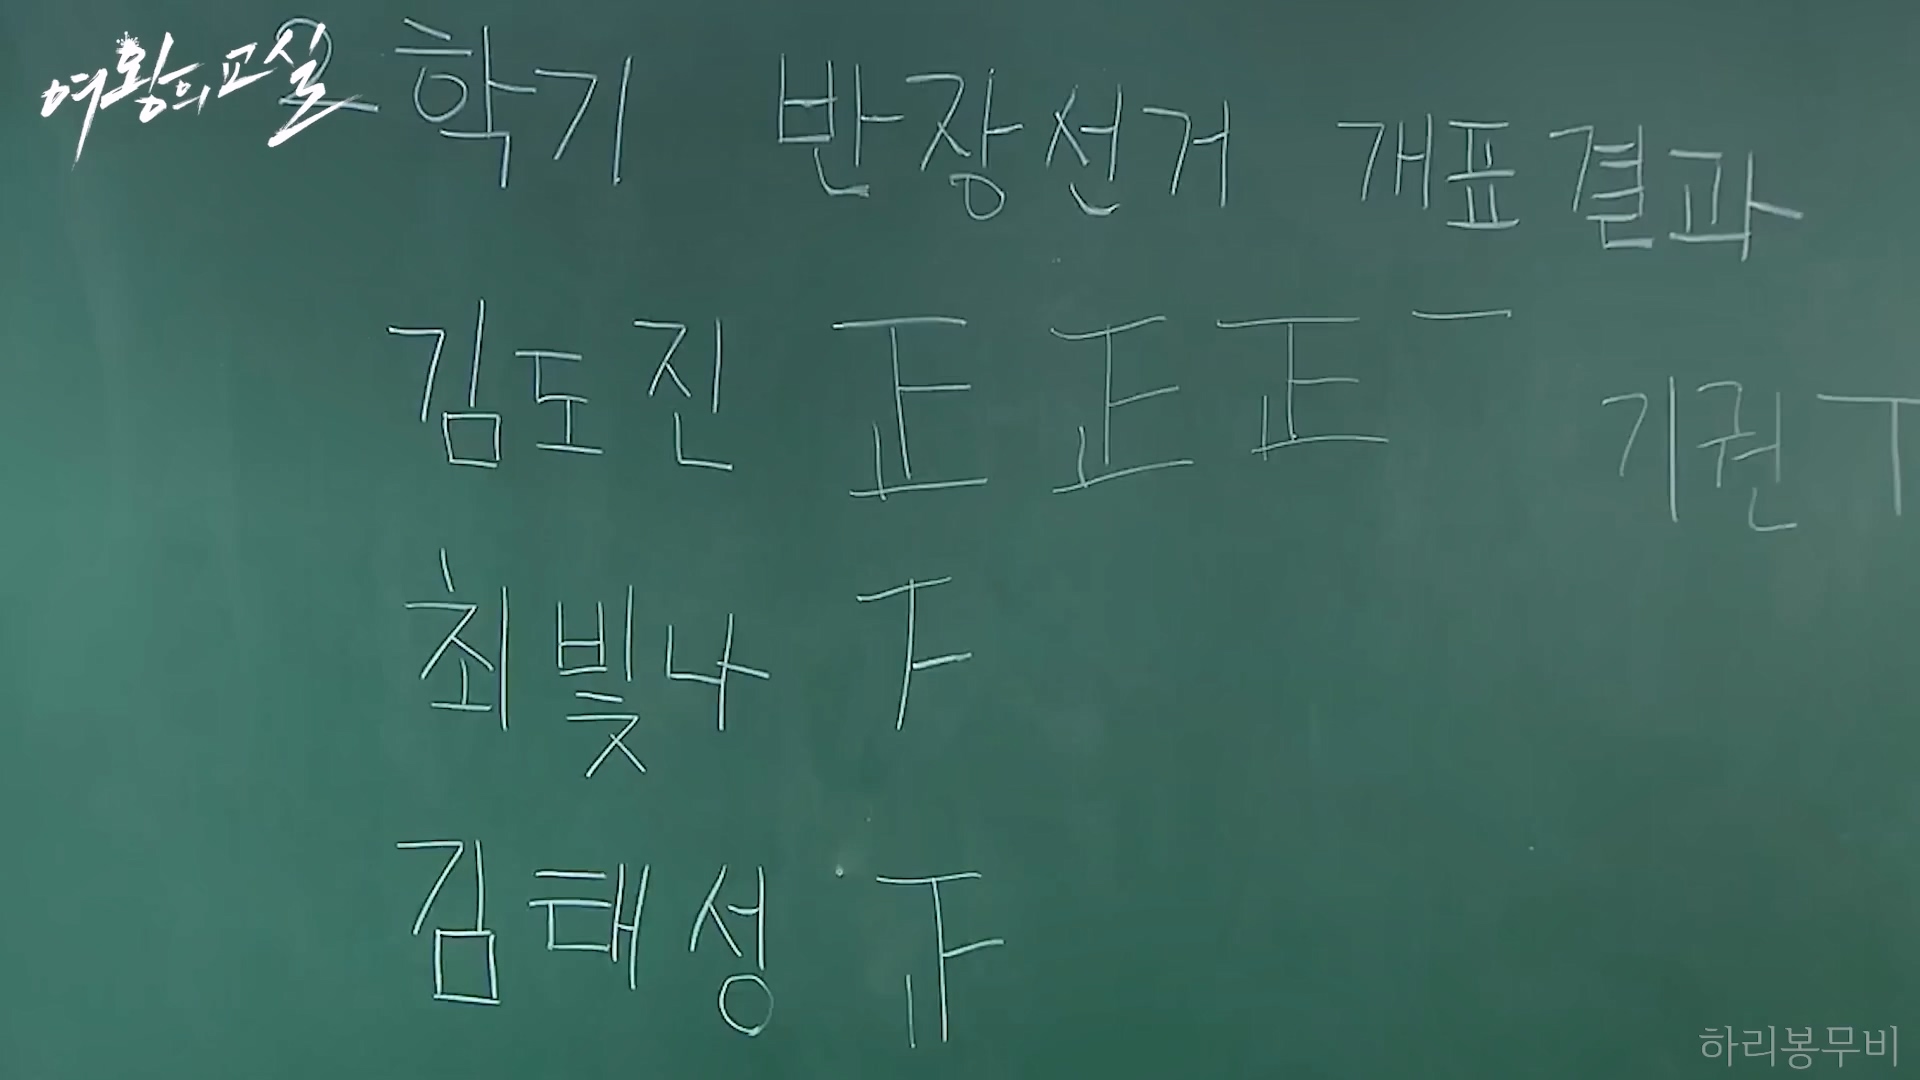 여왕의 교실
2학기 반장선거 개표결과
김도진 正 正 正 一
기권 T
최빛나 F
김태성 正
하리봉무비